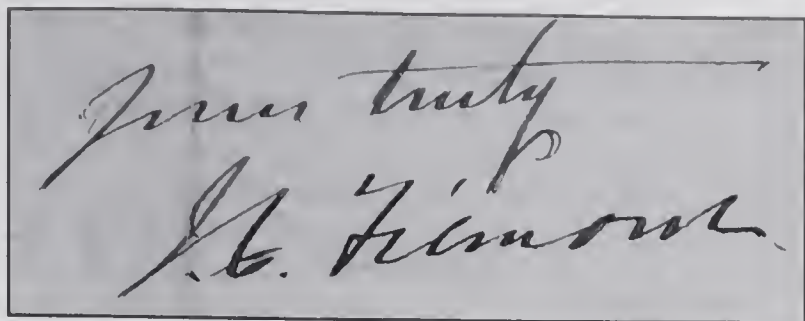 Yours truly
J. C. Frémont.